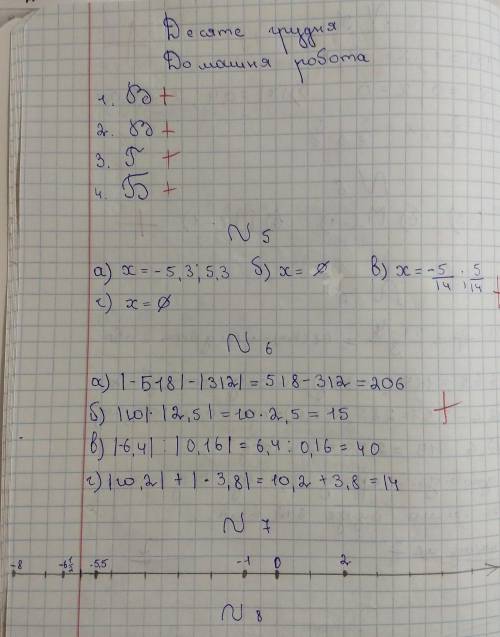 Десяте грудня
Домашня робота
1. В +
2. В +
3. Г +
4. Б +
№ 5
а) x = -5,3; 5,3 б) x = ∅ в) x = -5/14; 5/14 +
г) x = ∅
№ 6
а) |-518| - |312| = 518 - 312 = 206
б) |10| · |2,5| = 10 · 2,5 = 15 +
в) |-6,4| : |0,16| = 6,4 : 0,16 = 40
г) |10,2| + |-3,8| = 10,2 + 3,8 = 14
№ 7
-8 -6 1/2 -5,5 -1 0 2
№ 8